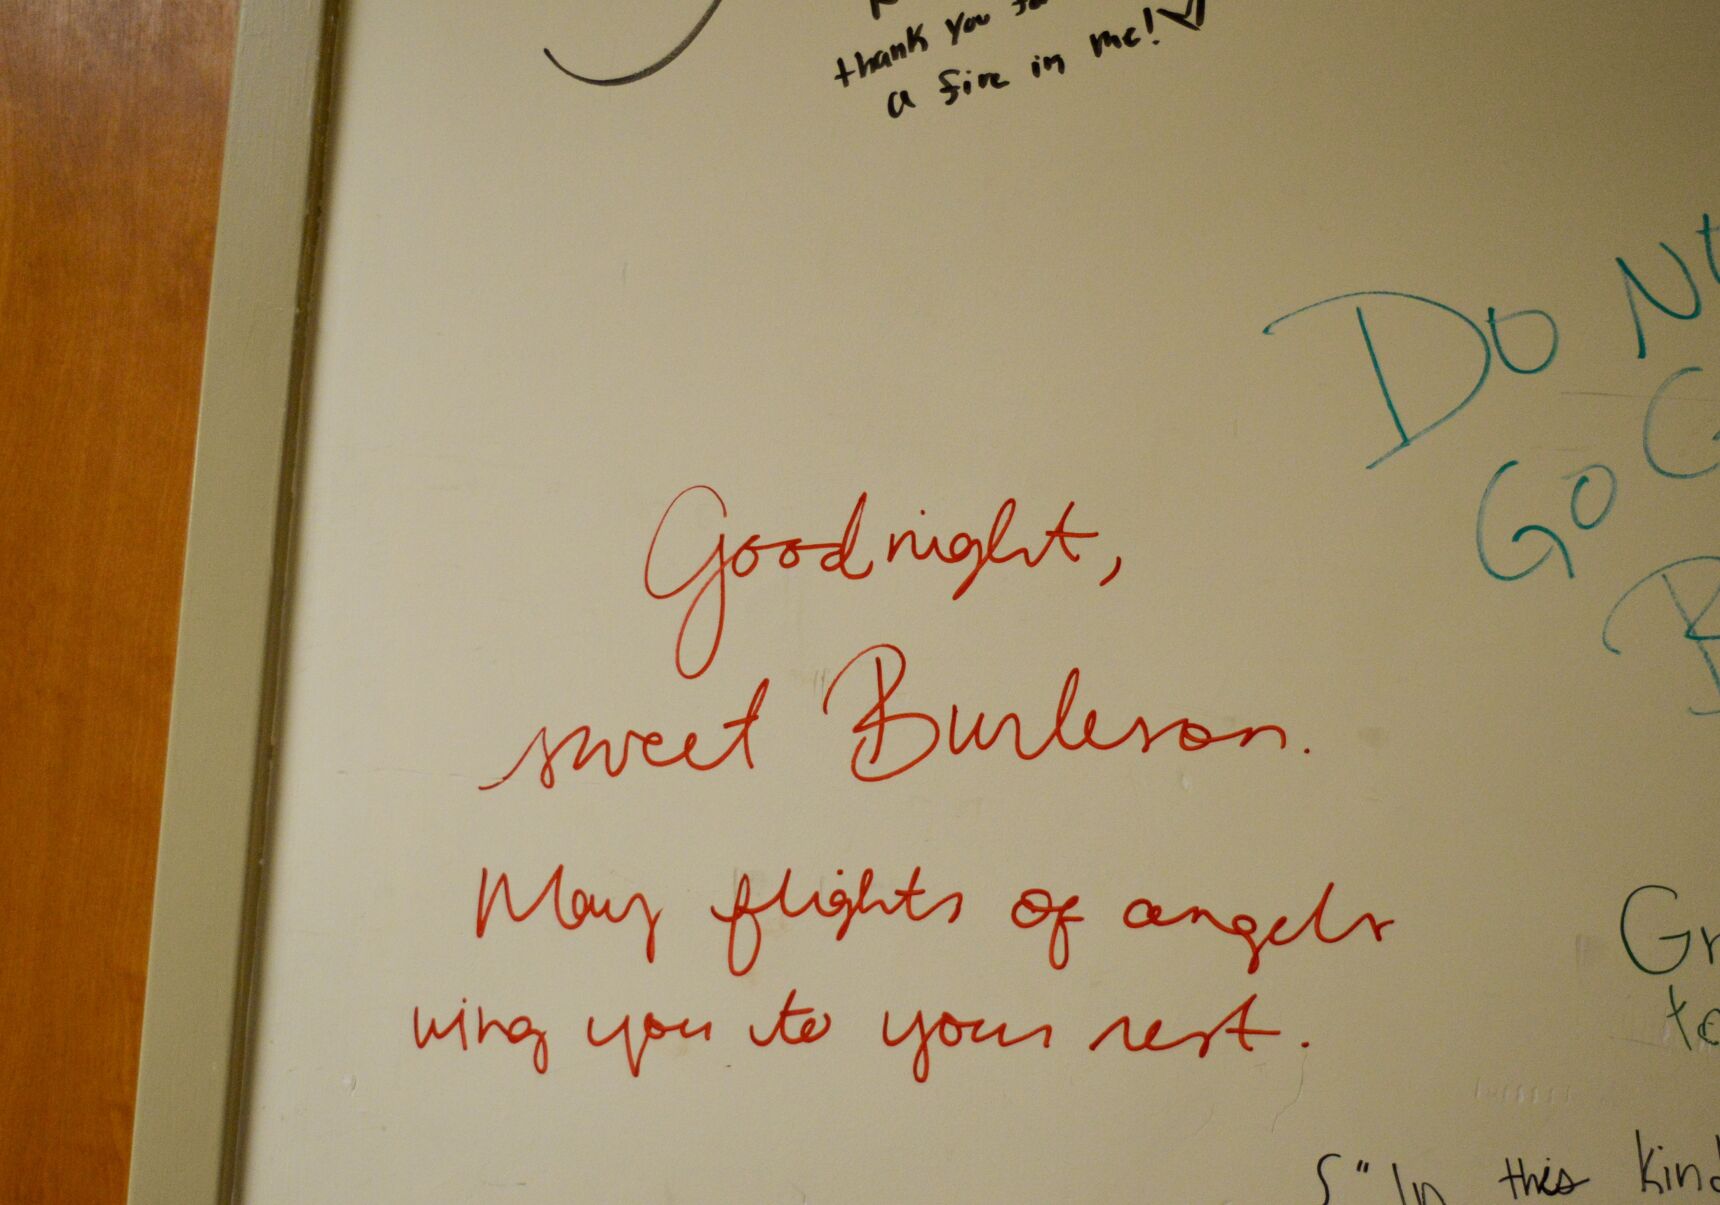 thank you
a fire in me!
DO
GO
Goodnight,
sweet Burleson.
May flights of angels
wing you to your rest.
"In this